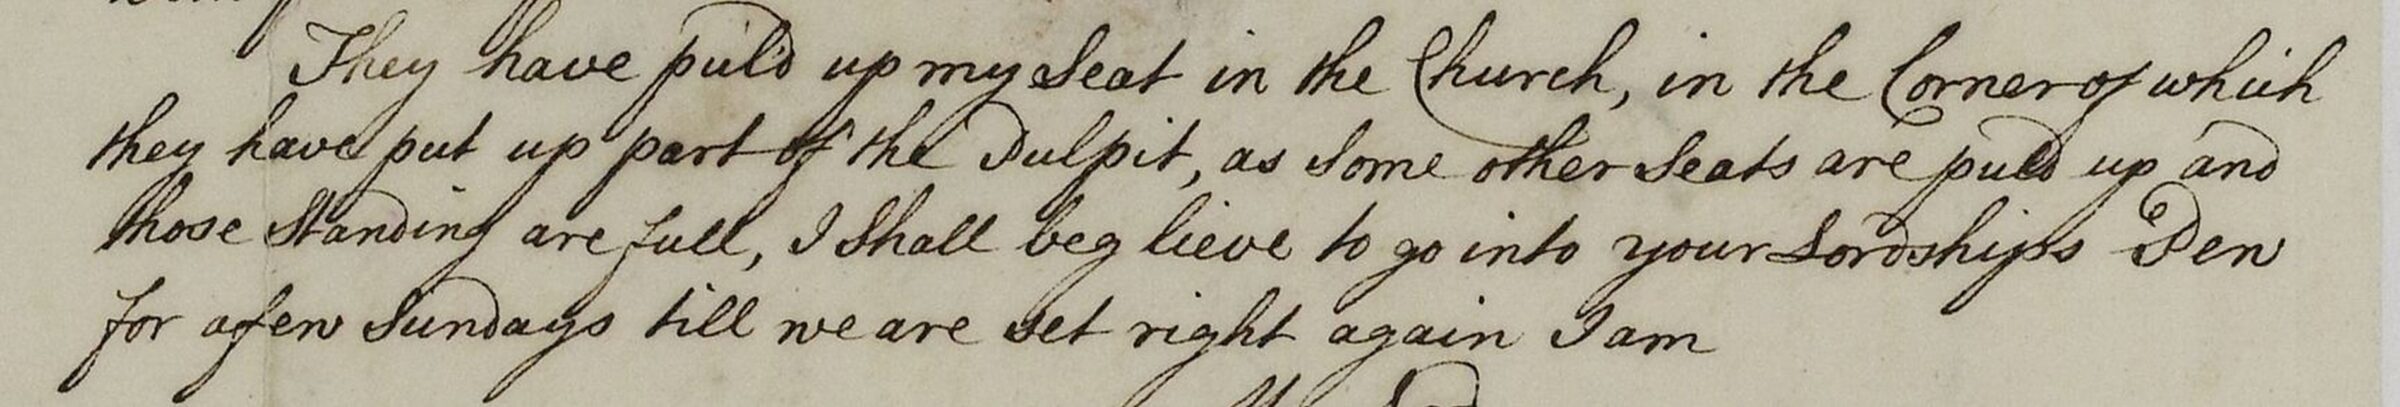 They have pul'd up my Seat in the Church, in the Corner of which
they have put up part of the Pulpit, as Some other Seats are puld up and
those Standing are full, I Shall beg lieve to go into your Lordships Pew
for a few Sundays till we are set right again I am